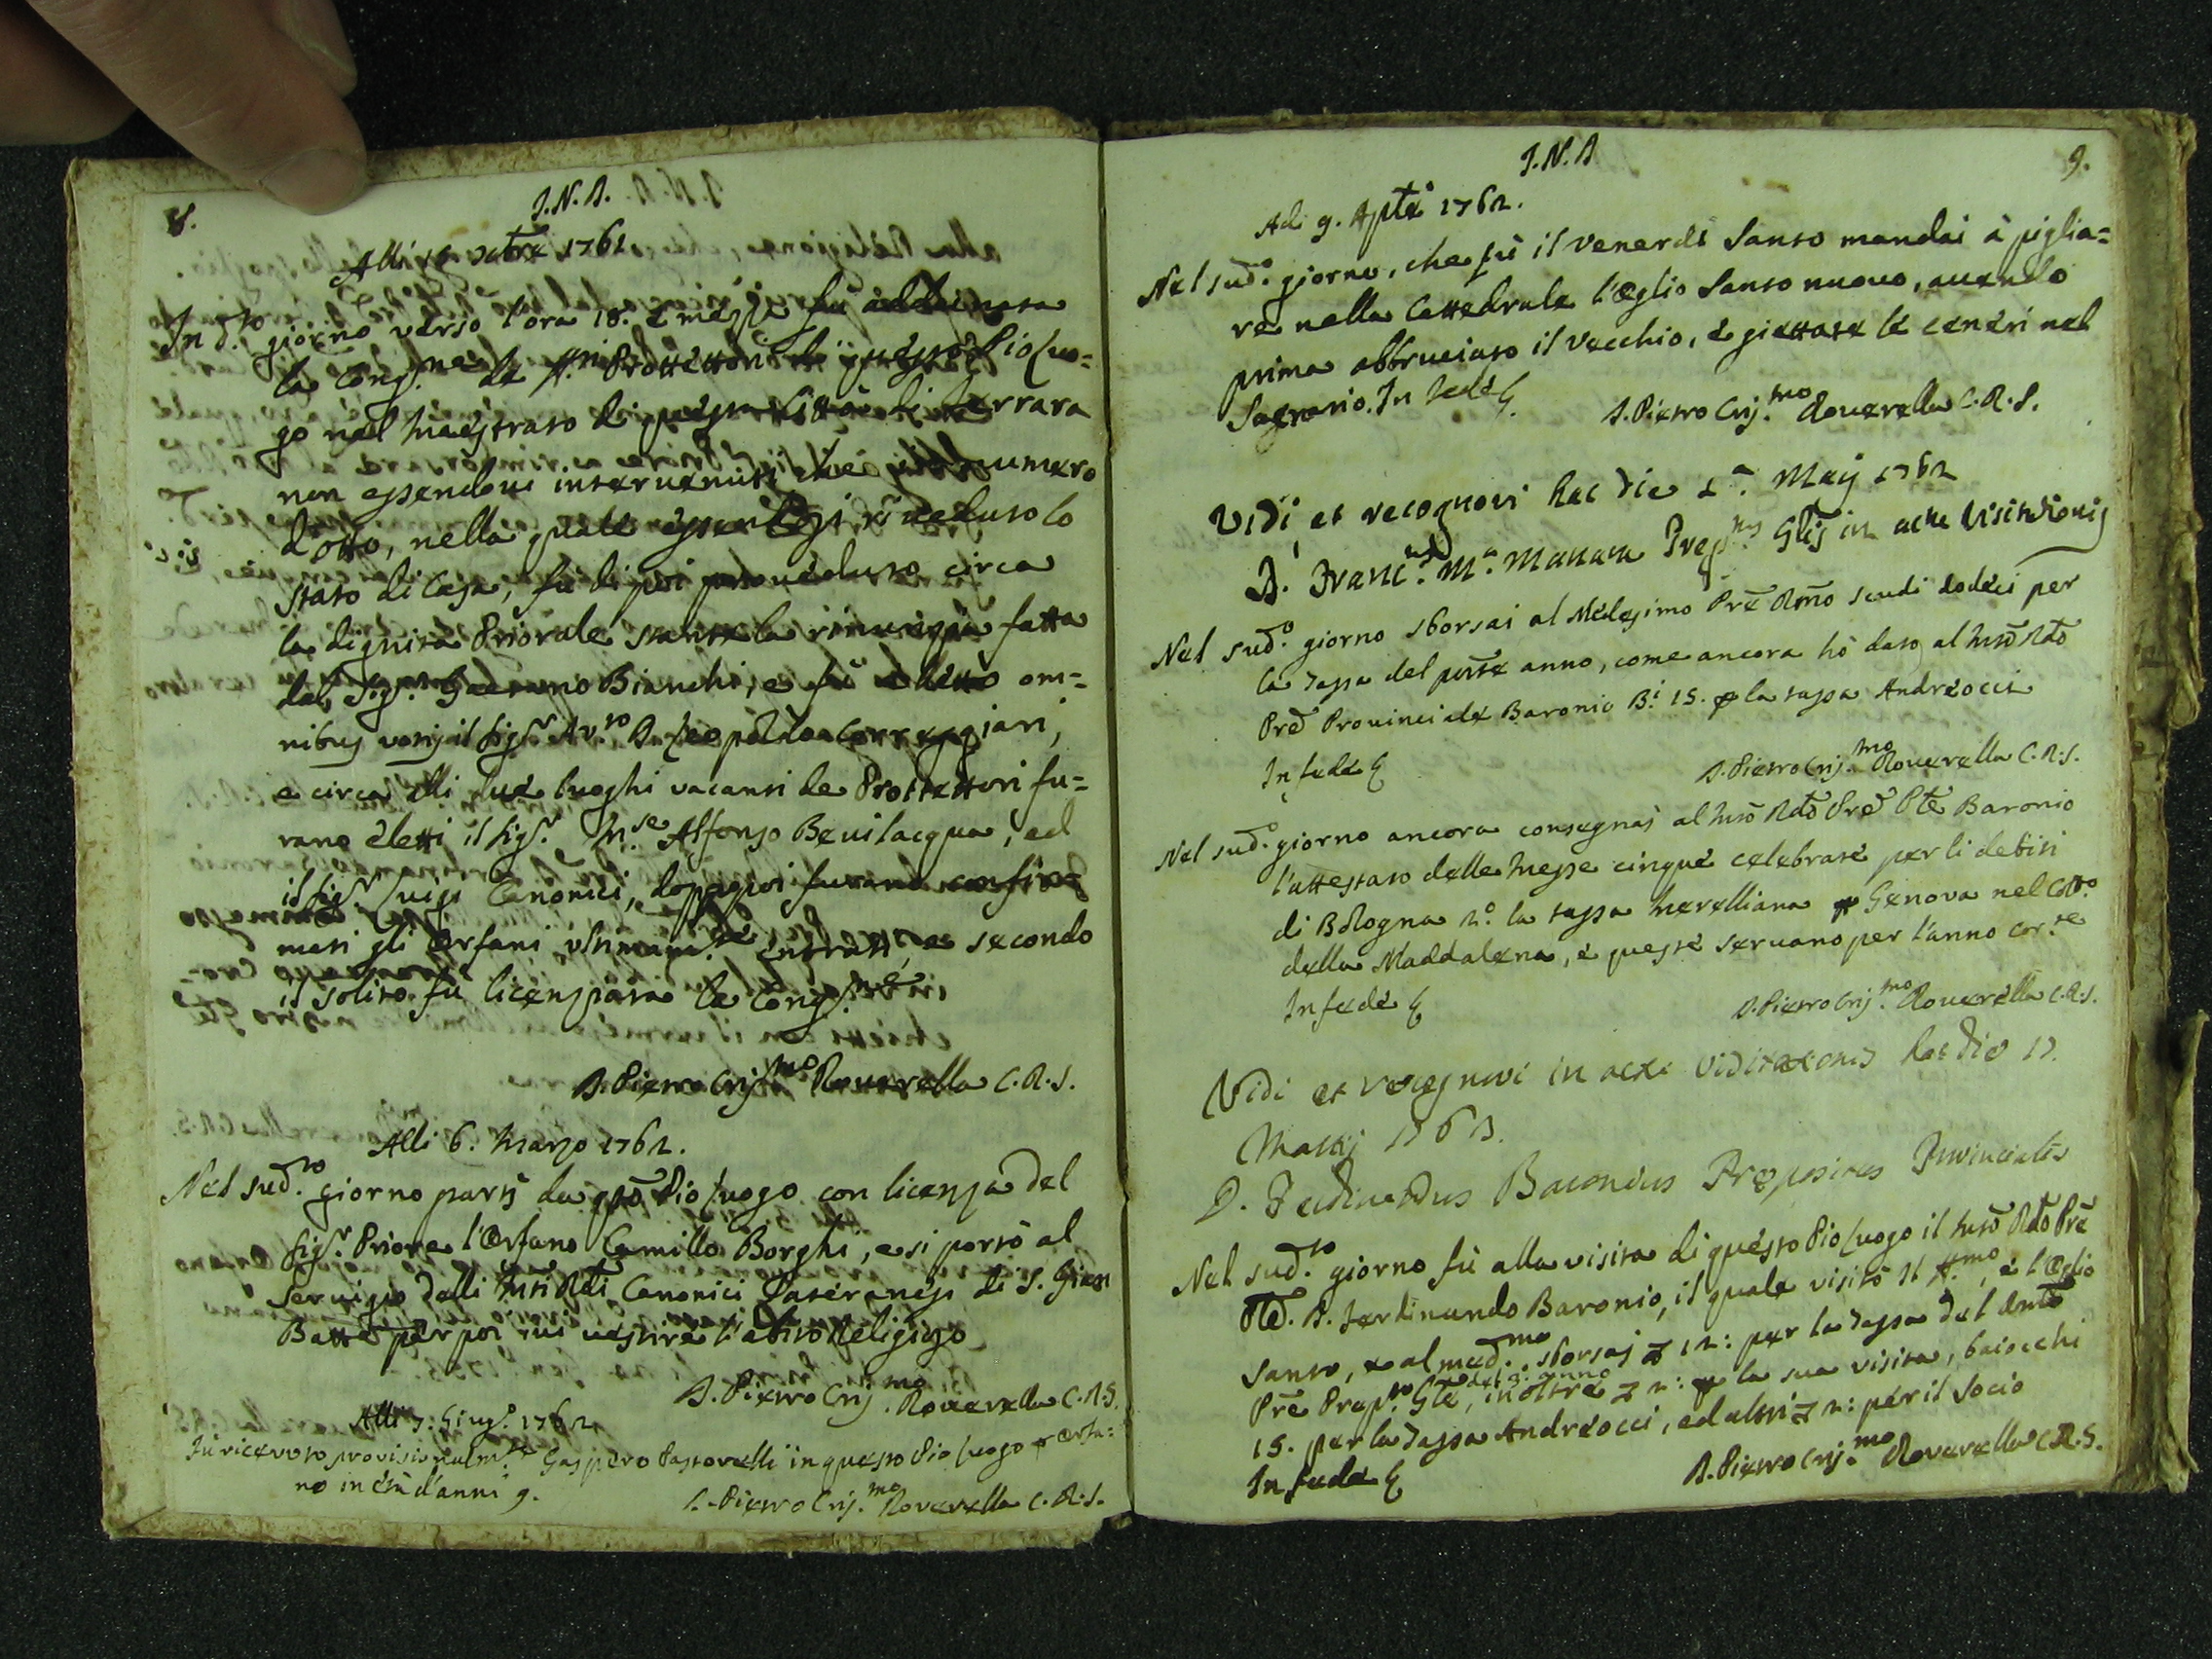 8.
J.N.D.
Alli 16 xmbre 1761
In d.to giorno verso l'ora 18. e mezza fù addunata
la Cong.ne de SS.ri Prottettori di questo Pio Luo=
go nel Maestrato di questa Città di Ferrara
non essendovi intervenuti che il numero
d'otto, nella quale essendosi veduto lo
stato di Casa, fù di poi proveduto circa
la dignità Priorale stante la rinunzia fatta
dal Sig.r Gaetano Bianchi, e fù eletto om=
nibus votis il Sig.r Av.to D. Leopoldo Correggiari,
e circa alli due luoghi vacanti de Prottettori fu=
rano eletti il Sig.r M.se Alfonso Bevilacqua, ed
il Sig.r Luigi Canonici, doppoi furano confir=
mati gli Orfani ultimam.te entrati, e secondo
il solito fù licenziata la Cong.ne
D. Pietro Cris.mo Roverella C.R.S.
Alli 6. Marzo 1762.
Nel sud.to giorno partì da qsto Pio Luogo con licenza del
Sig.r Priore l'Orfano Camillo Borghi, e si portò al
servizio delli Mti Rdi Canonici Lateranesi di S. Gian
Batta per poi ivi vestire l'abito Religioso
D. Pietro Cris.mo Roverella C.R.S.
Alli 7. Giug.o 1762
Fù ricevuto provisionalm.te Gasparo Pastorelli in questo Pio Luogo p Orfa=
no in età d'anni 9.
D. Pietro Cris.mo Roverella C.R.S.
J.N.D
9.
Adi 9. Aple 1762.
Nel sud.o giorno, che fù il Venerdì Santo mandai à piglia=
re nella Cattedrale l'Oglio Santo nuovo, avendo
prima abbruciato il vecchio, e giettate le ceneri nel
Sagrario. In fede
D. Pietro Cris.mo Roverella C.R.S.
Vidi, et recognovi hac die 2.a Maij 1762
D. Franc.us M.a Manara Prep.tus Glis in actu Visitationis
Nel sud.o giorno sborsai al Medesimo Pre Rmo scudi dodeci per
la Tassa del pnte anno, come ancora hò dato al Mto Rdo
Pre Provinciale Baronio B.i 15. p la tassa Andreocci
In fede
D. Pietro Cris.mo Roverella C.R.S.
Nel sud.o giorno ancora consegnai al Mto Rdo Pre Ple Baronio
l'attestato delle Messe cinque celebrate per li debiti
di Bologna 2.o la tassa Merelliana p Genova nel Coll.o
della Maddalena, e queste servano per l'anno cor.te
In fede
D. Pietro Cris.mo Roverella C.R.S.
Vidi et recognovi in actu visitationis hac die 17.
Martij 1763.
D. Ferdinandus Baronius Præpositus Provincialis
Nel sud.to giorno fù alla visita di questo Pio Luogo il Mto Rdo Pre
Ple. D. Ferdinando Baronio, il quale visitò il SS.mo, e l'Oglio
Santo, e al med.mo sborsai 12: per la Tassa del dnto
Pre Prep.to Gle, del 3. anno inoltre 2: p la sua visita, baiocchi
15. per la Tassa Andreocci, ed altri 2: per il Socio
In fede
D. Pietro Cris.mo Roverella C.R.S.